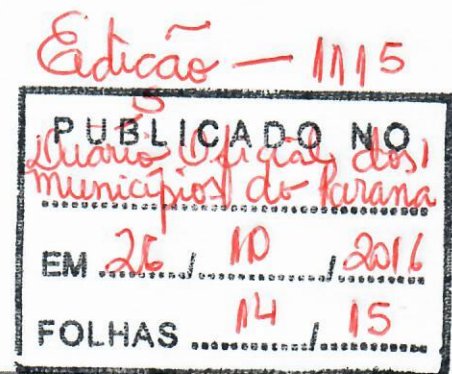 Edição — 1115
PUBLICADO NO
Diário Oficial dos
Municípios do Paraná
EM 26 / 10 / 2016
FOLHAS 14 / 15